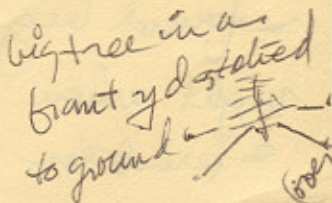 big tree in a
front yd staked
to ground